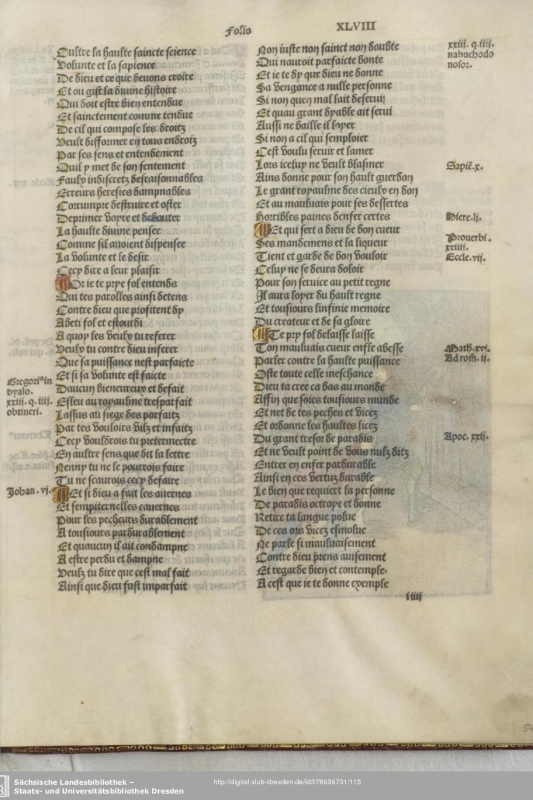 Folio XLVIII
Oultre la haulte saincte science
Volunte et la sapience
De dieu et ce que devons croire
Et ou gist la divine histoire
Qui doit estre bien entendue
Et sainctement comme tendue
De cil qui compose les droitz
Veult difformer en tous endroitz
Par ses sens et entendement
Quil y met de son sentement
Faulx indiscretz desraisonnables
Erreurs heresies dampnables
Corrumpre destruire et oster
Deprimer voyre et debouter
La haulte divine pensee
Comme sil avoient dispensee
La volunte et le desir
Cecy dire a leur plaisir
Or ie te prye fol entends
Qui tes parolles ainsi detens
Contre dieu que profitent dy
Abeti fol et estourdi
A quoy les veulx tu referer
Veulx tu contre dieu inferer
Que sa puissance nest parfaicte
Et si sa volunte est faicte
Daucun bieneureux et defait
Esleu au royaulme tresparfait
Lassus au siege des parfaitz
Par tes vouloirs vilz et infaitz
Cecy vouldrois tu pretermectre
En aultre sens que dit la lettre
Nenny tu ne le pourrois faire
Tu ne scaurois cecy defaire
Et si dieu a fait les avernes
Et sempiternelles cavernes
Pour les pecheurs durablement
A tousiours pardurablement
Et quaucun il ait condampne
A estre perdu et dampne
Veulx tu dire que cest mal fait
Ainsi que dieu fust imparfait
Gregori⁹ in
dyalo.
xxiii. q. iiii.
obtineri.
Johan. vj.
Non iuste non sainct non doubte
Qui nauroit parfaicte bonte
Et ie te dy que dieu ne donne
Sa vengance a nulle personne
Si non quen mal fait deservi
Et quau grant dyable ait servi
Aussi ne baille il loyer
Si non a cil qui semployer
Cest voulu servir et lamer
Lors icelup ne veult blasmer
Ains donne pour son hault guerdon
Le grant royaulme des cieulx en don
Et au mauvais pour ses dessertes
Horribles paines denfer certes
Et qui sert a dieu de bon cueur
Ses mandemens et la liqueur
Tient et garde de bon vouloir
Celuy ne se devra doloir
Pour son service au petit regne
Il aura loyer du hault regne
Et tousiours linfinie memoire
Du createur et de sa gloire
Te pry fol delaisse laisse
Ton mauvais cueur ensse abesse
Parler contre la haulte puissance
Oste toute celle meschance
Dieu ta cree ca bas au monde
Affin que soies tousiours munde
Et net de tes peches et vicez
Et ordonne les haultes licez
Du grant tresor de paradis
Et ne veult point de vous nulz ditz
Entrer en enfer pardurable
Ainsi en ces vertuz durable
Le bien que requiert la personne
De paradis octroye et donne
Retire ta langue polue
De ces ors vicez esmolue
Ne parle si mauvaisement
Contre dieu prens avisement
Et regarde bien et contemple.
A cest que ie te donne exemple
iiii
xxiii. q. iiii.
nabuchodo
nosor.
Sapiē. x.
Hiere. li.
Prouerbi.
xxiiii.
Eccle. vij.
Math. xvi.
Ad rom. ij.
Apoc. xxii.
Sächsische Landesbibliothek –
Staats- und Universitätsbibliothek Dresden
http://digital.slub-dresden.de/id378636731/115